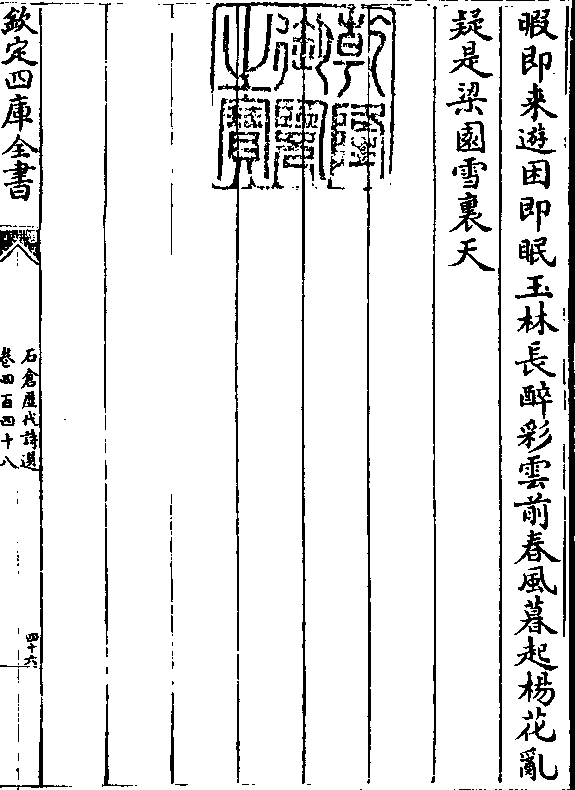 暇即来遊困即眠玉林長醉彩雲前春風暮起楊花亂
疑是梁園雪裏天
乾隆御覽之寶
欽定四庫全書
石倉歷代詩選
卷四百四十八
四十六